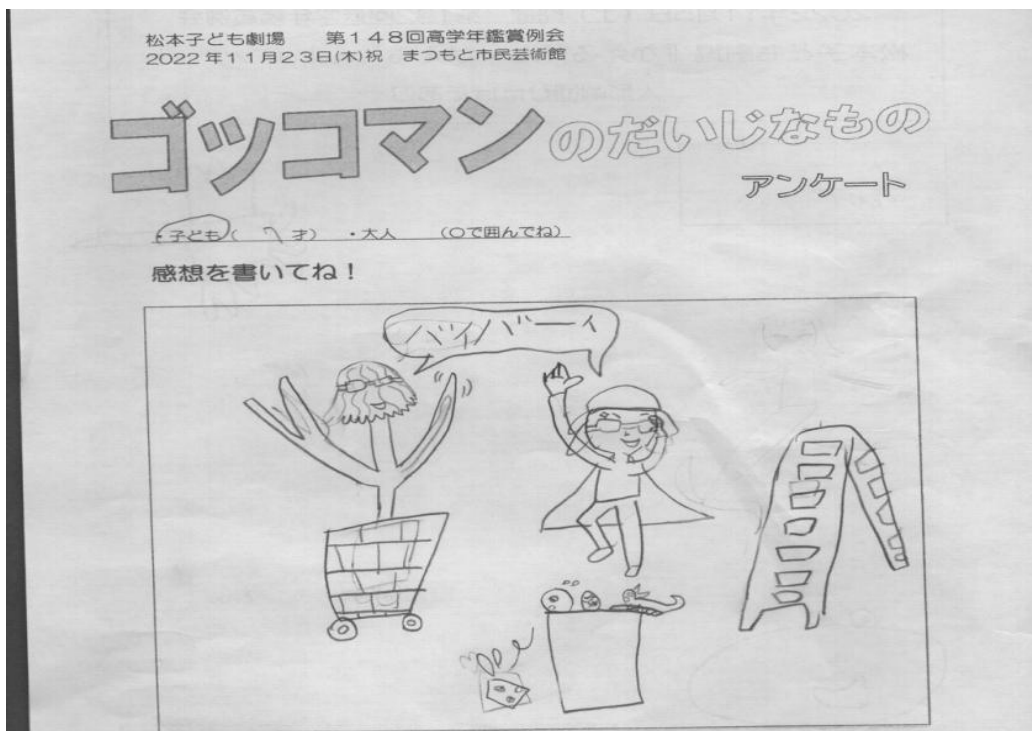 松本子ども劇場　第１４８回高学年鑑賞例会
２０２２年１１月２３日(木)祝　まつもと市民芸術館
ゴッコマンのだいじなもの
アンケート
・子ども（ 7 才）　・大人　（○で囲んでね）
感想を書いてね！
バイバーイ